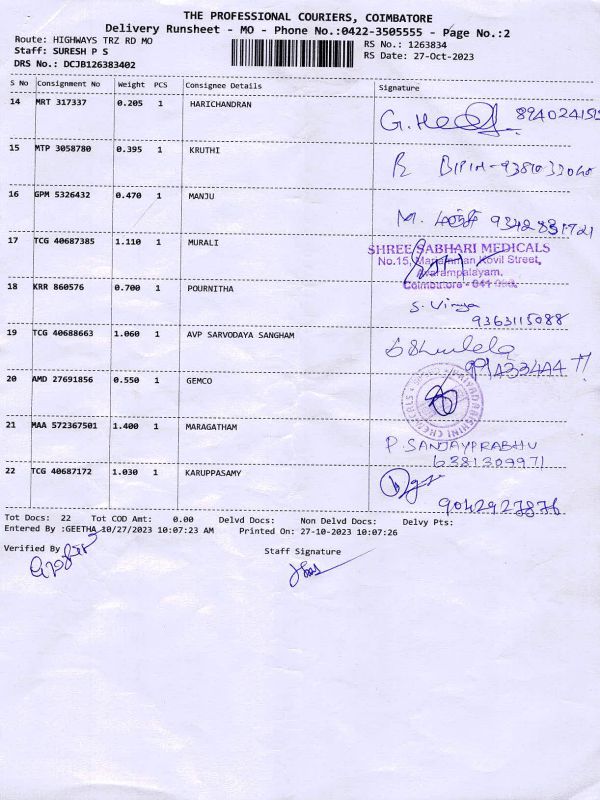 THE PROFESSIONAL COURIERS, COIMBATORE
Delivery Runsheet - MO - Phone No.:0422-3505555 - Page No.:2
Route: HIGHWAYS TRZ RD MO
RS No.: 1263834
Staff: SURESH P S
RS Date: 27-Oct-2023
DRS No.: DCJB126383402
S No Consignment No Weight PCS Consignee Details Signature
14 MRT 317337 0.205 1 HARICHANDRAN
G. 8940241515
15 MTP 3058780 0.395 1 KRUTHI
BIPIN-
16 GPM 5326432 0.470 1 MANJU
M. 9342831721
17 TCG 40687385 1.110 1 MURALI
SHREE SABHARI MEDICALS
No.15, Mariamman Kovil Street,
Avarampalayam,
Coimbatore - 641 006.
18 KRR 860576 0.700 1 POURNITHA
S. Vinuya
9363115088
19 TCG 40688663 1.060 1 AVP SARVODAYA SANGHAM
20 AMD 27691856 0.550 1 GEMCO
21 MAA 572367501 1.400 1 MARAGATHAM
P. SANJAYPRABHU
6381309971
22 TCG 40687172 1.030 1 KARUPPASAMY
9042927876
Tot Docs: 22 Tot COD Amt: 0.00 Delvd Docs: Non Delvd Docs: Delvy Pts:
Entered By :GEETHA 10/27/2023 10:07:23 AM Printed On: 27-10-2023 10:07:26
Verified By Staff Signature